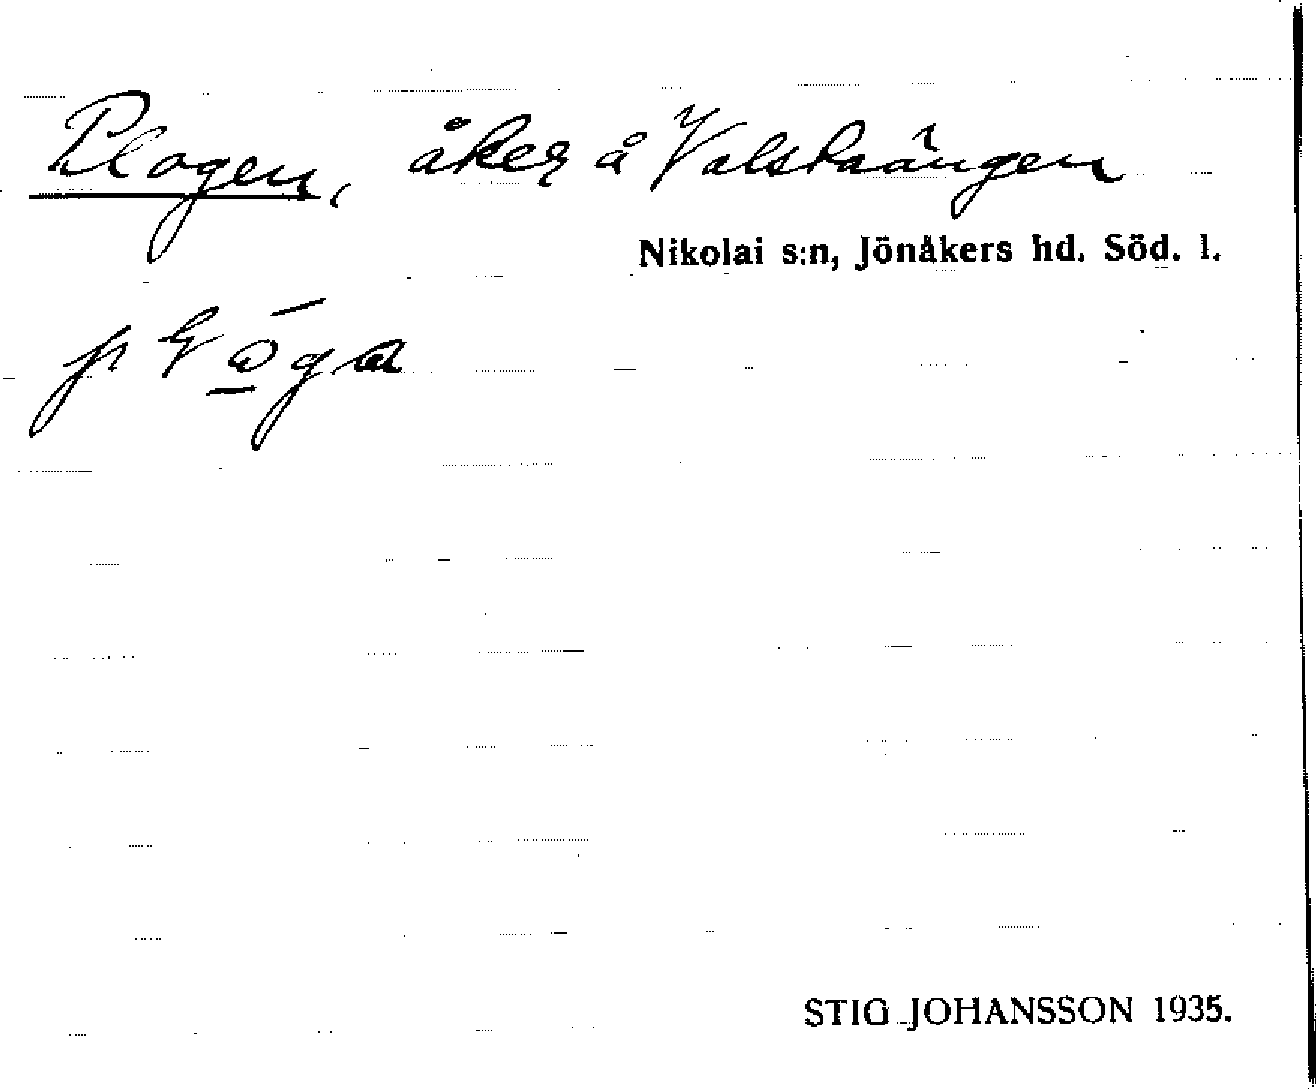 Plogen, åker å Valskaängen
Nikolai s:n, Jönåkers hd. Söd. l.
STIG JOHANSSON 1935.